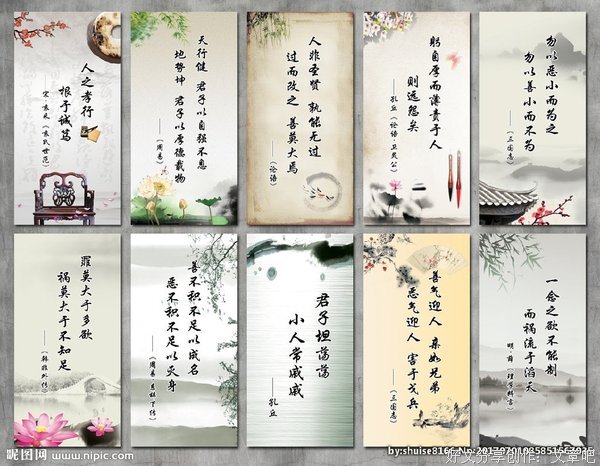 人之孝行
根于诚笃
宋 袁采《袁氏世范》
天行健 君子以自强不息
地势坤 君子以厚德载物
——《周易》
人非圣贤 孰能无过
过而改之 善莫大焉
——《论语》
躬自厚而薄责于人
则远怨矣
——孔丘《论语 卫灵公》
勿以恶小而为之
勿以善小而不为
——《三国志》
罪莫大于多欲
祸莫大于不知足
——《韩非外传》
善不积不足以成名
恶不积不足以灭身
——《周易 系辞下传》
君子坦荡荡
小人常戚戚
——孔丘
善气迎人 亲如兄弟
恶气迎人 害于戈兵
——《三国志》
一念之欲不能制
而祸流于滔天
昵图网 www.nipic.com
by:shuise8166
好文分享创作：文章吧